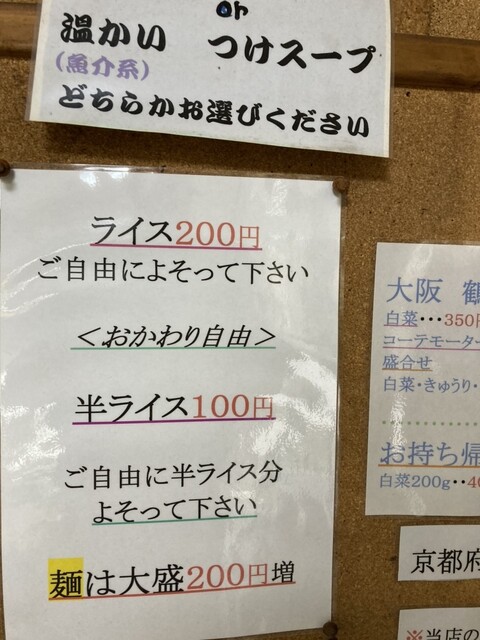 or
温かい つけスープ
(魚介系)
どちらかお選びください
ライス200円
ご自由によそって下さい
<おかわり自由>
半ライス100円
ご自由に半ライス分
よそって下さい
麺は大盛200円増
大阪 鶴
白菜・・・350円
コーテモーター
盛合せ
白菜・きゅうり・
お持ち帰
白菜200g・・40
京都府
※当店の